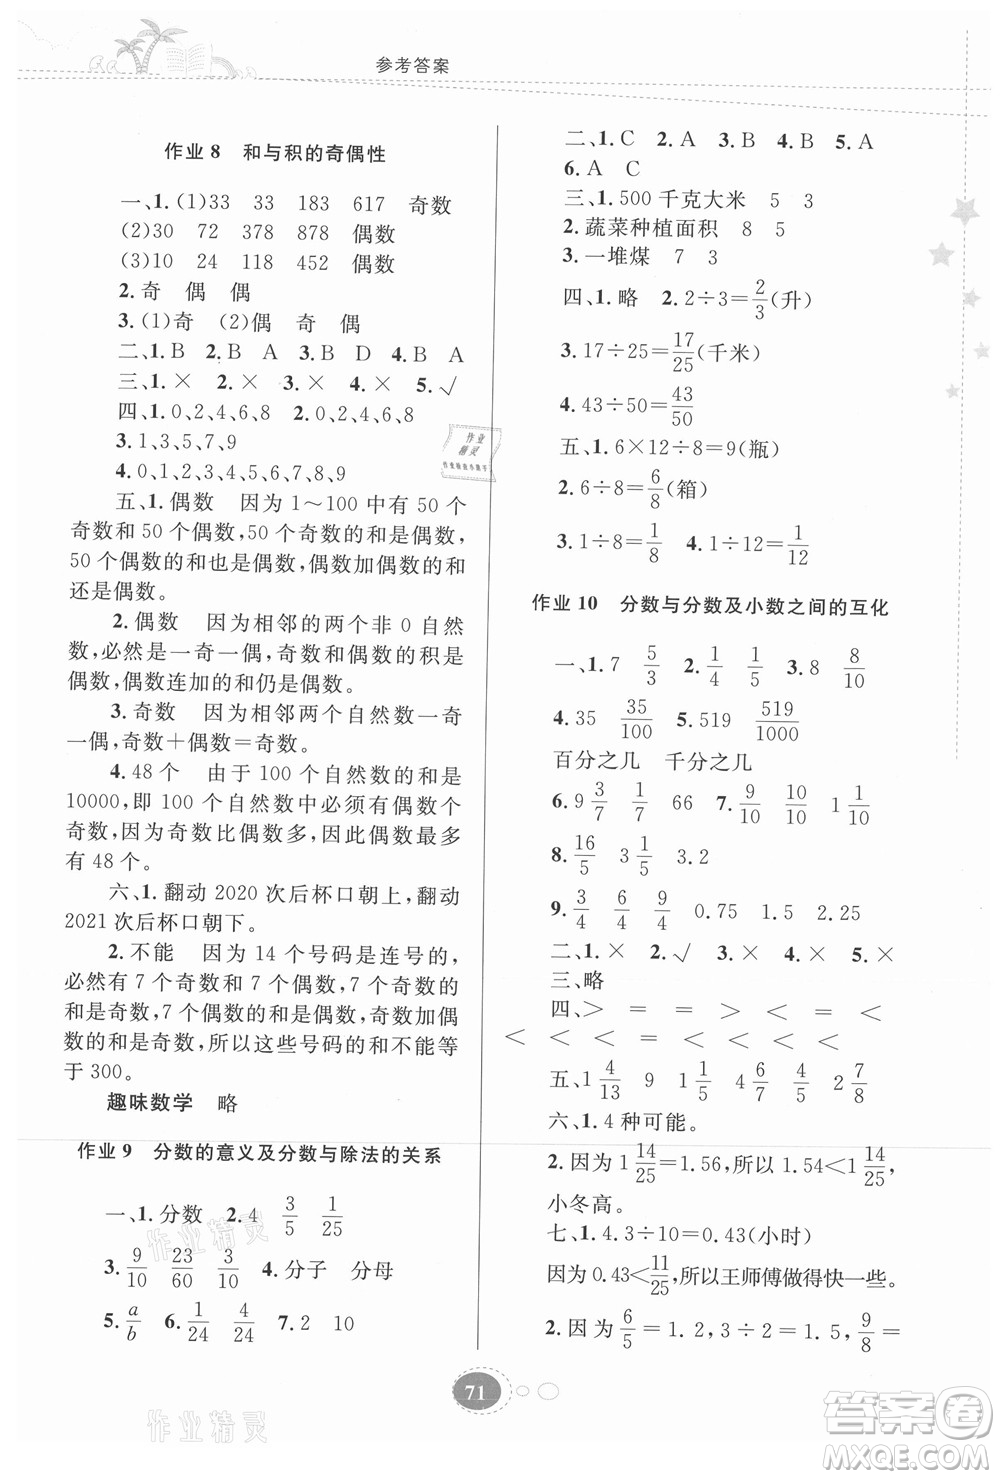 参考答案
作业 8　和与积的奇偶性
一、1. (1)33　33　183　617　奇数
(2)30　72　378　878　偶数
(3)10　24　118　452　偶数
2. 奇　偶　偶
3. (1)奇　(2)偶　奇　偶
二、1. B　2. B　A　3. B　D　4. B　A
三、1. ×　2. ×　3. ×　4. ×　5. √
四、1. 0、2、4、6、8　2. 0、2、4、6、8
3. 1、3、5、7、9
4. 0、1、2、3、4、5、6、7、8、9
五、1. 偶数　因为 1～100 中有 50 个
奇数和 50 个偶数,50 个奇数的和是偶数,
50 个偶数的和也是偶数,偶数加偶数的和
还是偶数。
2. 偶数　因为相邻的两个非 0 自然
数,必然是一奇一偶,奇数和偶数的积是
偶数,偶数连加的和仍是偶数。
3. 奇数　因为相邻两个自然数一奇
一偶,奇数＋偶数＝奇数。
4. 48 个　由于 100 个自然数的和是
10000,即 100 个自然数中必须有偶数个
奇数,因为奇数比偶数多,因此偶数最多
有 48 个。
六、1. 翻动 2020 次后杯口朝上,翻动
2021 次后杯口朝下。
2. 不能　因为 14 个号码是连号的,
必然有 7 个奇数和 7 个偶数,7 个奇数的
和是奇数,7 个偶数的和是偶数,奇数加偶
数的和是奇数,所以这些号码的和不能等
于 300。
趣味数学　略
作业 9　分数的意义及分数与除法的关系
一、1. 分数　2. 4　3/5　1/25
3. 9/10　23/60　3/10　4. 分子　分母
5. a/b　6. 1/24　4/24　7. 2　10
二、1. C　2. A　C　3. B　4. B　5. A
6. A　C
三、1. 500 千克大米　5　3
2. 蔬菜种植面积　8　5
3. 一堆煤　7　3
四、1. 略　2. 2÷3＝2/3(升)
3. 17÷25＝17/25(千米)
4. 43÷50＝43/50
五、1. 6×12÷8＝9(瓶)
2. 6÷8＝6/8(箱)
3. 1÷8＝1/8　4. 1÷12＝1/12
作业 10　分数与分数及小数之间的互化
一、1. 7　5/3　2. 1/4　1/5　3. 8　8/10
4. 35　35/100　5. 519　519/1000
百分之几　千分之几
6. 9 3/7　1/7　66　7. 9/10　10/10　1 1/10
8. 16/5　3 1/5　9. 3/4　2.4　4.25
9. 3/4　6/4　9/4　0.75　1.5　2.25
二、1. ×　2. √　3. ×　4. ×　5. ×
三、略
四、＞　＝　＝　＜　＝　＜
＜　＜　＜　＜　＜　＜　＜
五、1 4/15　9　1 1/5　4 6/7　4　2 7/8
六、1. 4 种可能。
2. 因为 1 14/25＝1.56,所以 1.54＜1 14/25,
小冬高。
七、1. 4.3÷10＝0.43(小时)
因为 0.43＜11/25,所以王师傅做得快一些。
2. 因为 6/5＝1.2,3÷2＝1.5,9/8＝
71
作业精灵
作业精灵
作业精灵
答案圈
MXQE.COM